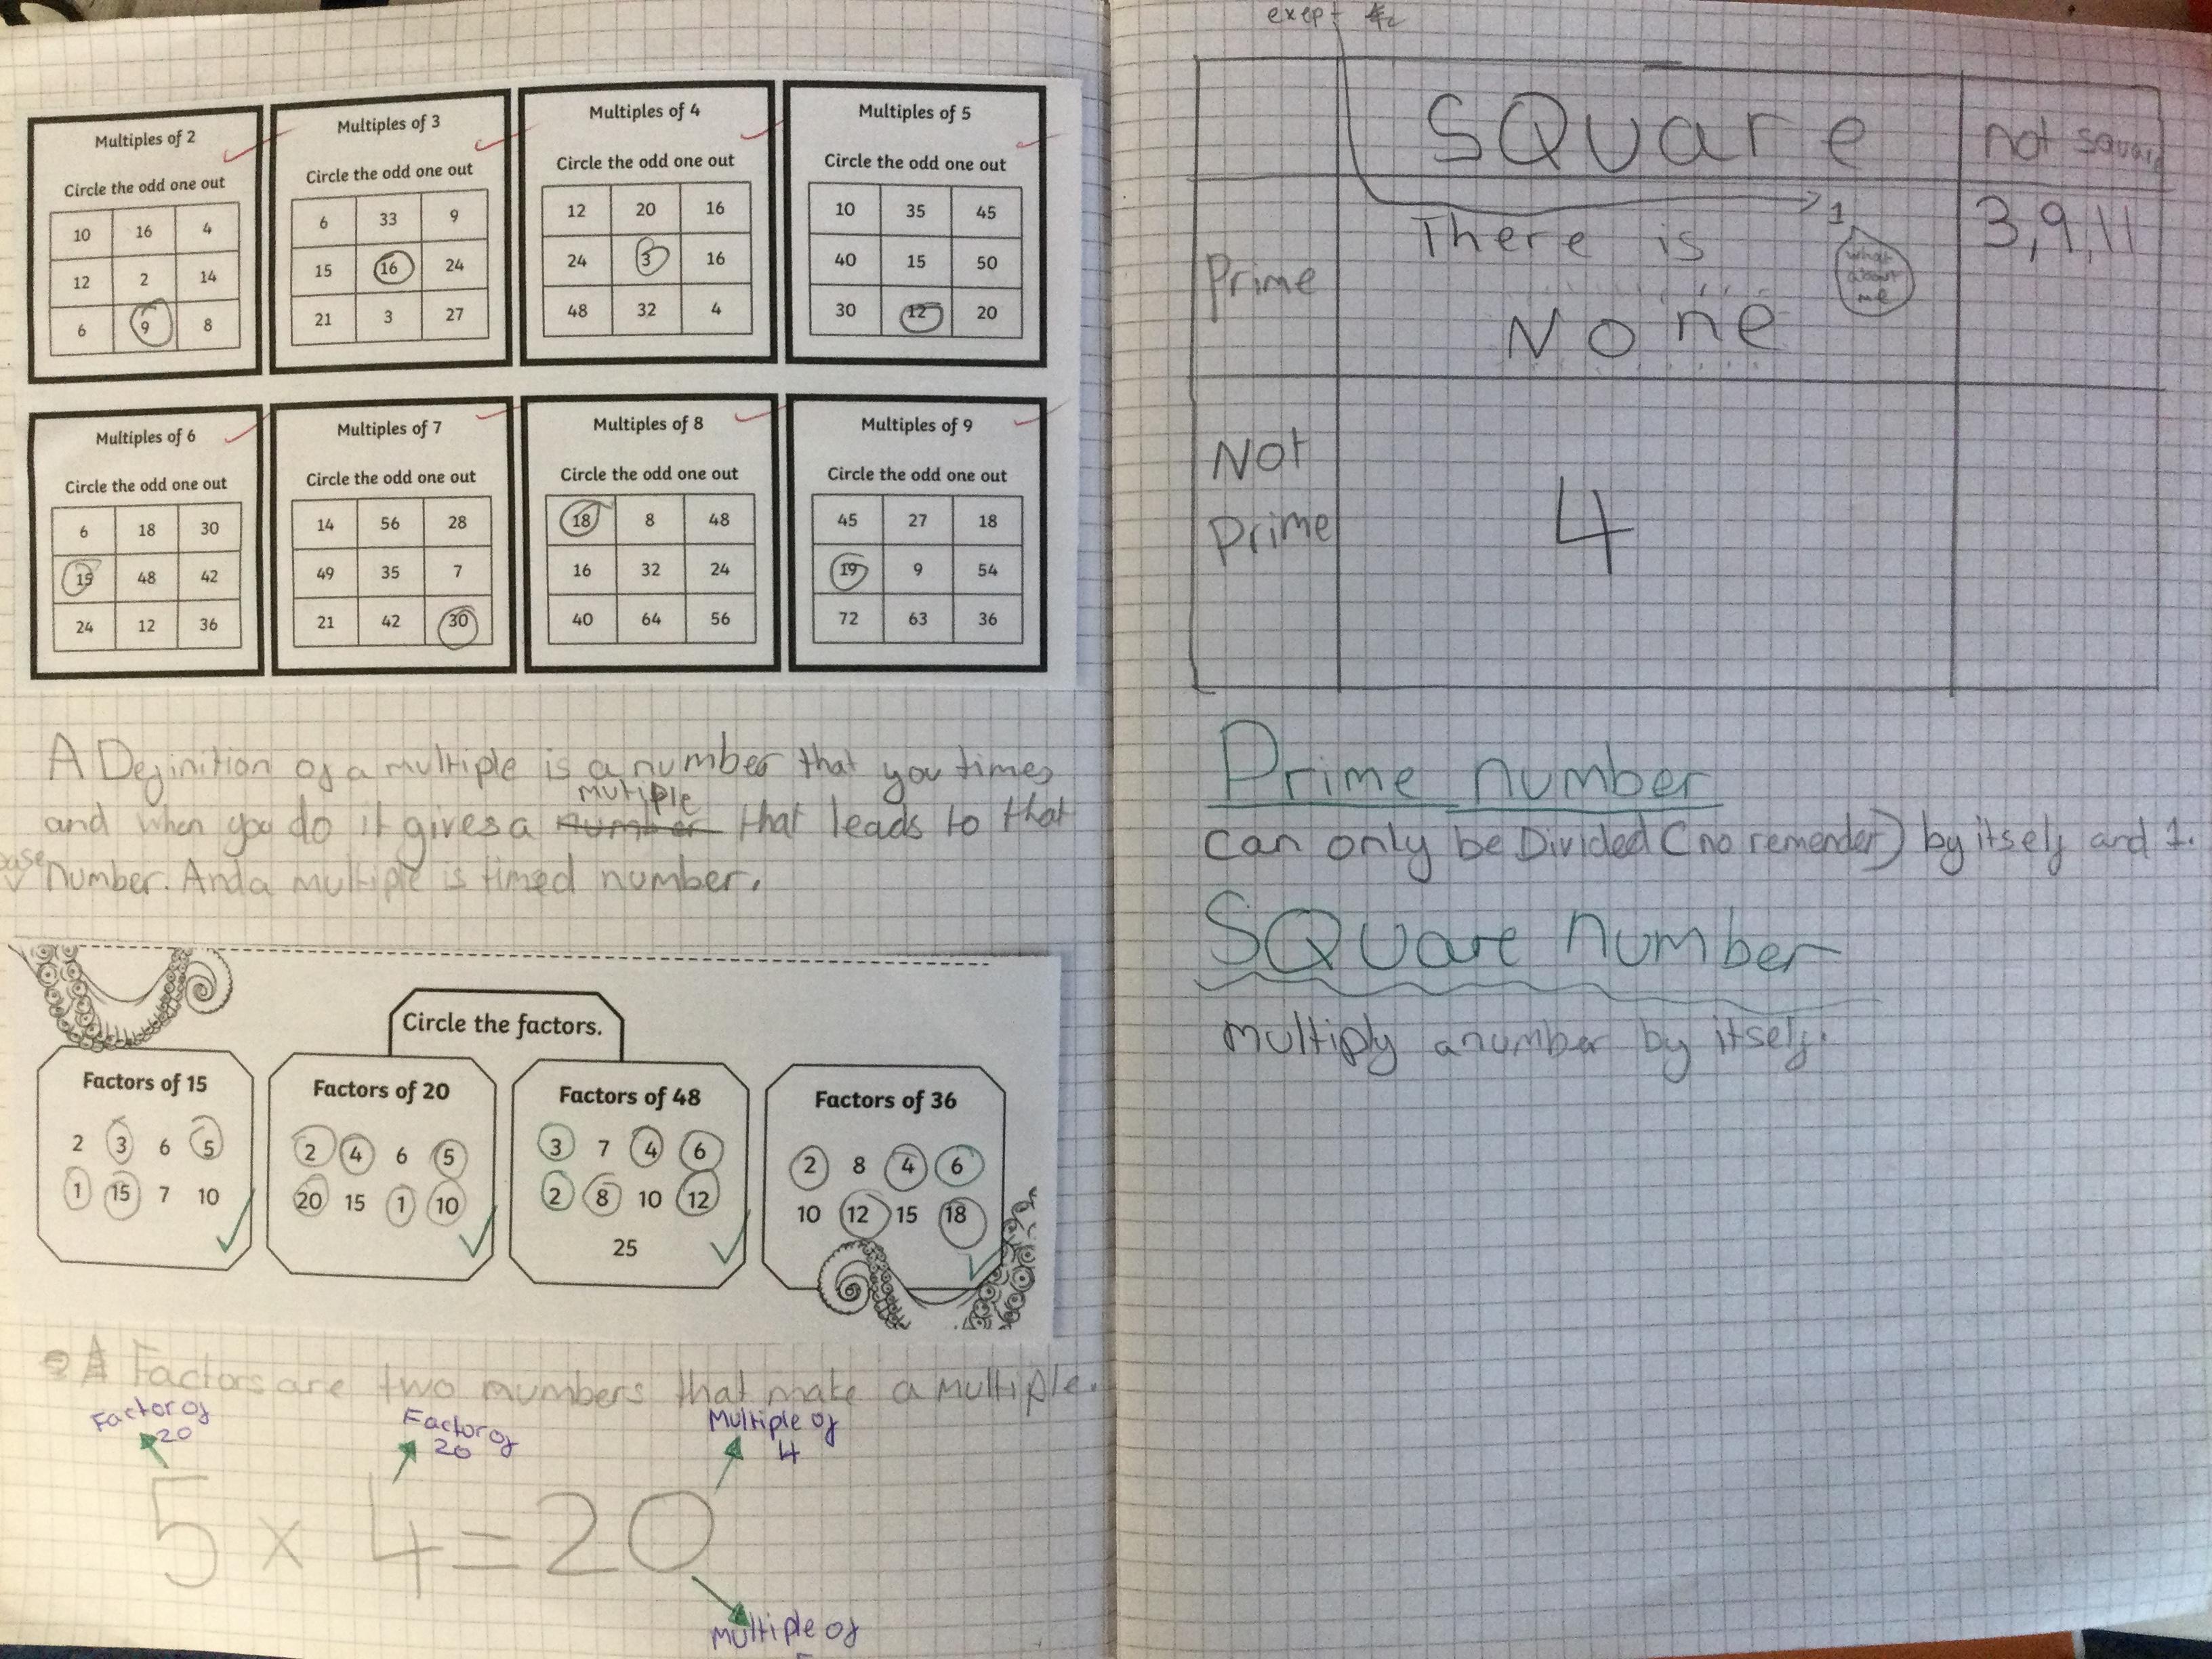 Multiples of 2
Circle the odd one out
10 16 4
12 2 14
6 9 8
Multiples of 3
Circle the odd one out
6 33 9
15 16 24
21 3 27
Multiples of 4
Circle the odd one out
12 20 16
24 3 16
48 32 4
Multiples of 5
Circle the odd one out
10 35 45
40 15 50
30 12 20
Multiples of 6
Circle the odd one out
6 18 30
15 48 42
24 12 36
Multiples of 7
Circle the odd one out
14 56 28
49 35 7
21 42 30
Multiples of 8
Circle the odd one out
18 8 48
16 32 24
40 64 56
Multiples of 9
Circle the odd one out
45 27 18
19 9 54
72 63 36
A Definition of a multiple is a number that you times
and when you do it gives a mutiple that leads to that
number. And a multiple is timed number.
Circle the factors.
Factors of 15
2 3 6 5
1 15 7 10
Factors of 20
2 4 6 5
20 15 1 10
Factors of 48
3 7 4 6
2 8 10 12
25
Factors of 36
2 8 4 6
10 12 15 18
Factors are two numbers that make a multiple.
Factor of
20
Factor of
20
Multiple of
4
5 × 4 = 20
Multiple of
SQuare
not square
Prime
There is
None
1
what
about
me
3, 9, 11
Not
Prime
4
Prime number
can only be Divided (no remender) by itself and 1.
SQuare number
Multiply a number by itself.